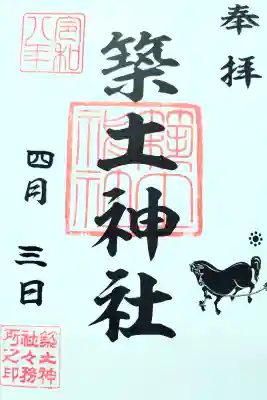 奉拝
築土神社
令和
八年
四月 三日
築土神
社々務
所之印